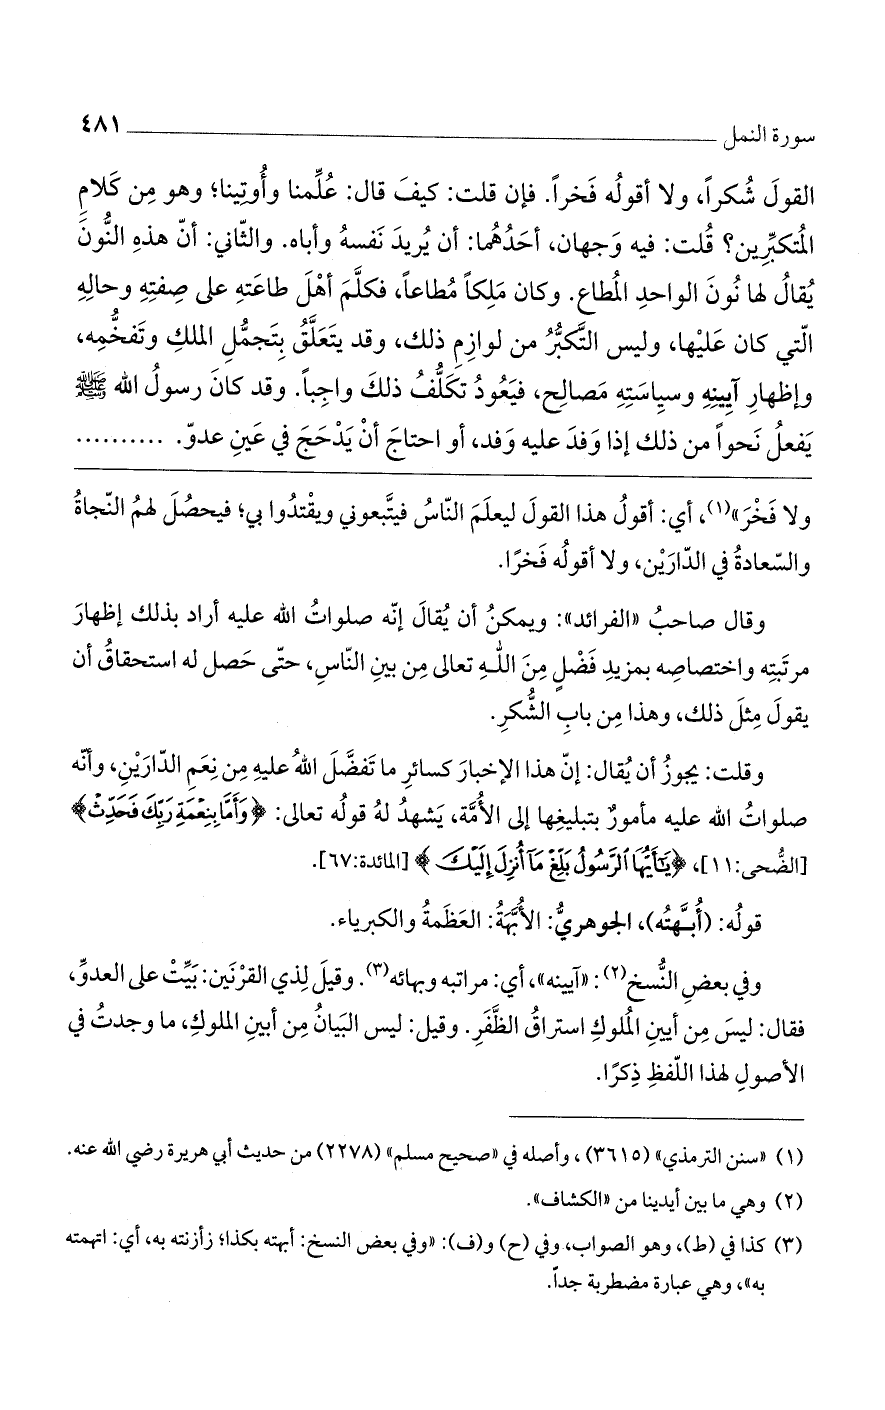 سورة النمل ٤٨١
القولَ شُكراً، ولا أقولُه فَخراً. فإن قلت: كيفَ قال: عُلِّمنا وأُوتِينا؛ وهو مِن كَلامِ
المُتكبِّرِين؟ قُلت: فيه وَجهان، أحَدُهُما: أن يُريدَ نَفسهُ وأباه. والثّاني: أنّ هذهِ النُّونَ
يُقالُ لها نُونَ الواحدِ المُطاع. وكان مَلِكاً مُطاعاً، فكلَّمَ أهْلَ طاعَتهِ على صِفتِهِ وحالِهِ
الّتي كان عَليْها، وليس التَّكبُّرُ من لوازِمِ ذلك، وقد يتَعَلَّقُ بِتَجمُّلِ الملكِ وتَفخُّمِه،
وإظهارِ آيينِهِ وسياسَتِهِ مَصالِح، فيَعُودُ تكَلُّفُ ذلكَ واجِباً. وقد كانَ رسولُ الله ﷺ
يَفعلُ نَحواً من ذلك إذا وَفدَ عليه وَفد، أو احتاجَ أنْ يَدْحَجَ في عَينِ عدوّ. ..........
ولا فَخْرَ»(١)، أي: أقولُ هذا القولَ ليعلَمَ النّاسُ فيتَّبعوني ويقْتدُوا بي؛ فيحصُلَ لهمُ النّجاةُ
والسّعادةُ في الدّارَيْن، ولا أقولُه فَخرًا.
وقال صاحبُ «الفرائد»: ويمكنُ أن يُقالَ إنّه صلواتُ الله عليه أراد بذلك إظهارَ
مرتَبتِه واختصاصِه بمزيدِ فَضْلٍ مِنَ اللَّهِ تعالى مِن بينِ النّاسِ، حتّى حَصل له استحقاقُ أن
يقولَ مِثلَ ذلك، وهذا مِن بابِ الشُّكرِ.
وقلت: يجوزُ أن يُقال: إنّ هذا الإخبارَ كسائرِ ما تَفضَّلَ اللهُ عليهِ مِن نِعَمِ الدّارَيْنِ، وأنّه
صلواتُ الله عليه مأمورٌ بتبليغِها إلى الأُمَّة، يَشهدُ لهُ قولُه تعالى: ﴿وَأَمَّا بِنِعْمَةِ رَبِّكَ فَحَدِّثْ﴾
[الضُّحى:١١]، ﴿يَٰٓأَيُّهَا ٱلرَّسُولُ بَلِّغْ مَآ أُنزِلَ إِلَيْكَ﴾ [المائدة:٦٧].
قولُه: (أُبَّهتُه)، الجوهريُّ: الأُبَّهَةُ: العَظَمةُ والكبرياء.
وفي بعضِ النُّسخ(٢): «آيينه»، أي: مراتبه وبهائه(٣). وقيلَ لِذي القرْنَين: بَيِّتْ على العدوِّ،
فقال: ليسَ مِن أيينِ المُلوكِ استراقُ الظَّفَرِ. وقيل: ليس البَيانُ مِن أيينِ الملوكِ، ما وجدتُ في
الأصولِ لهذا اللّفظِ ذِكرًا.
(١) «سنن الترمذي» (٣٦١٥)، وأصله في «صحيح مسلم» (٢٢٧٨) من حديث أبي هريرة رضي الله عنه.
(٢) وهي ما بين أيدينا من «الكشاف».
(٣) كذا في (ط)، وهو الصواب، وفي (ح) و(ف): «وفي بعض النسخ: أبهته بكذا؛ زأزنته به، أي: اتهمته
به»، وهي عبارة مضطربة جداً.